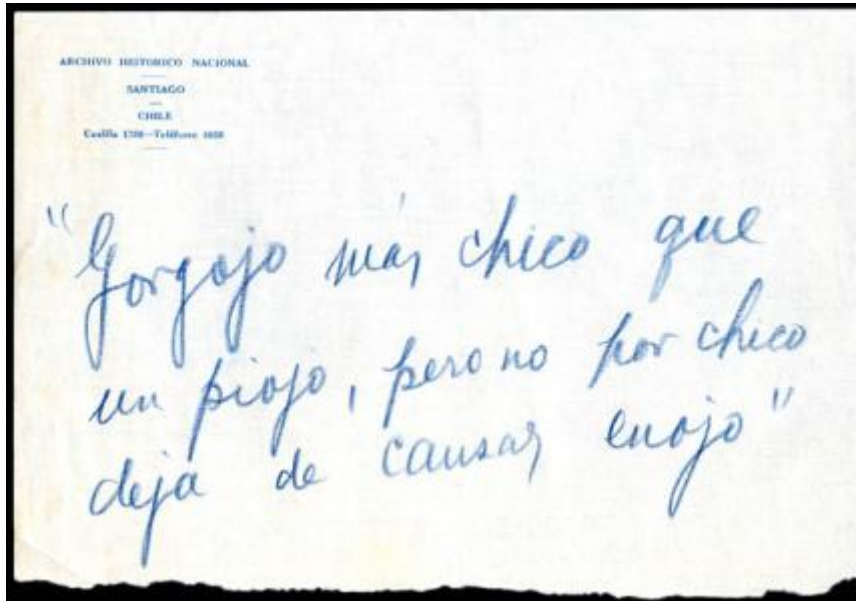 ARCHIVO HISTORICO NACIONAL
SANTIAGO
CHILE
Casilla 1700—Teléfono
"Gorgojo más chico que
un piojo, pero no por chico
deja de causar enojo"